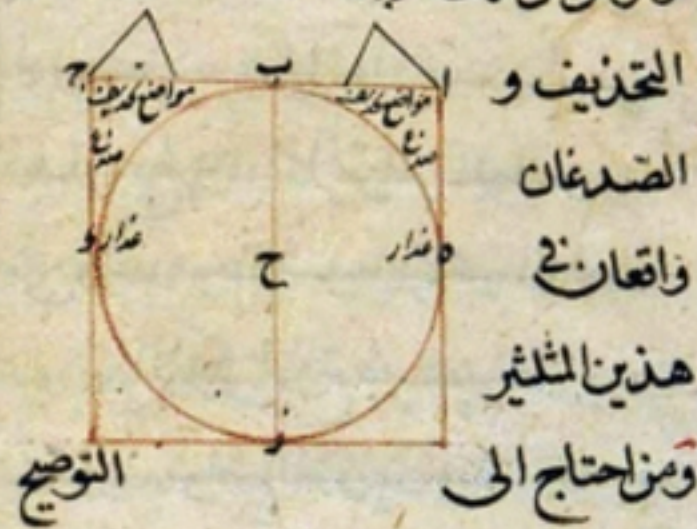 التحذيف و
الصدغان
واقعان في
هذين المثلثين
ومن احتاج الى التوضيح
ج ب ا
مواضع تحذيف مواضع تحذيف
صدغ صدغ
و عذار ح عذار ه
ز